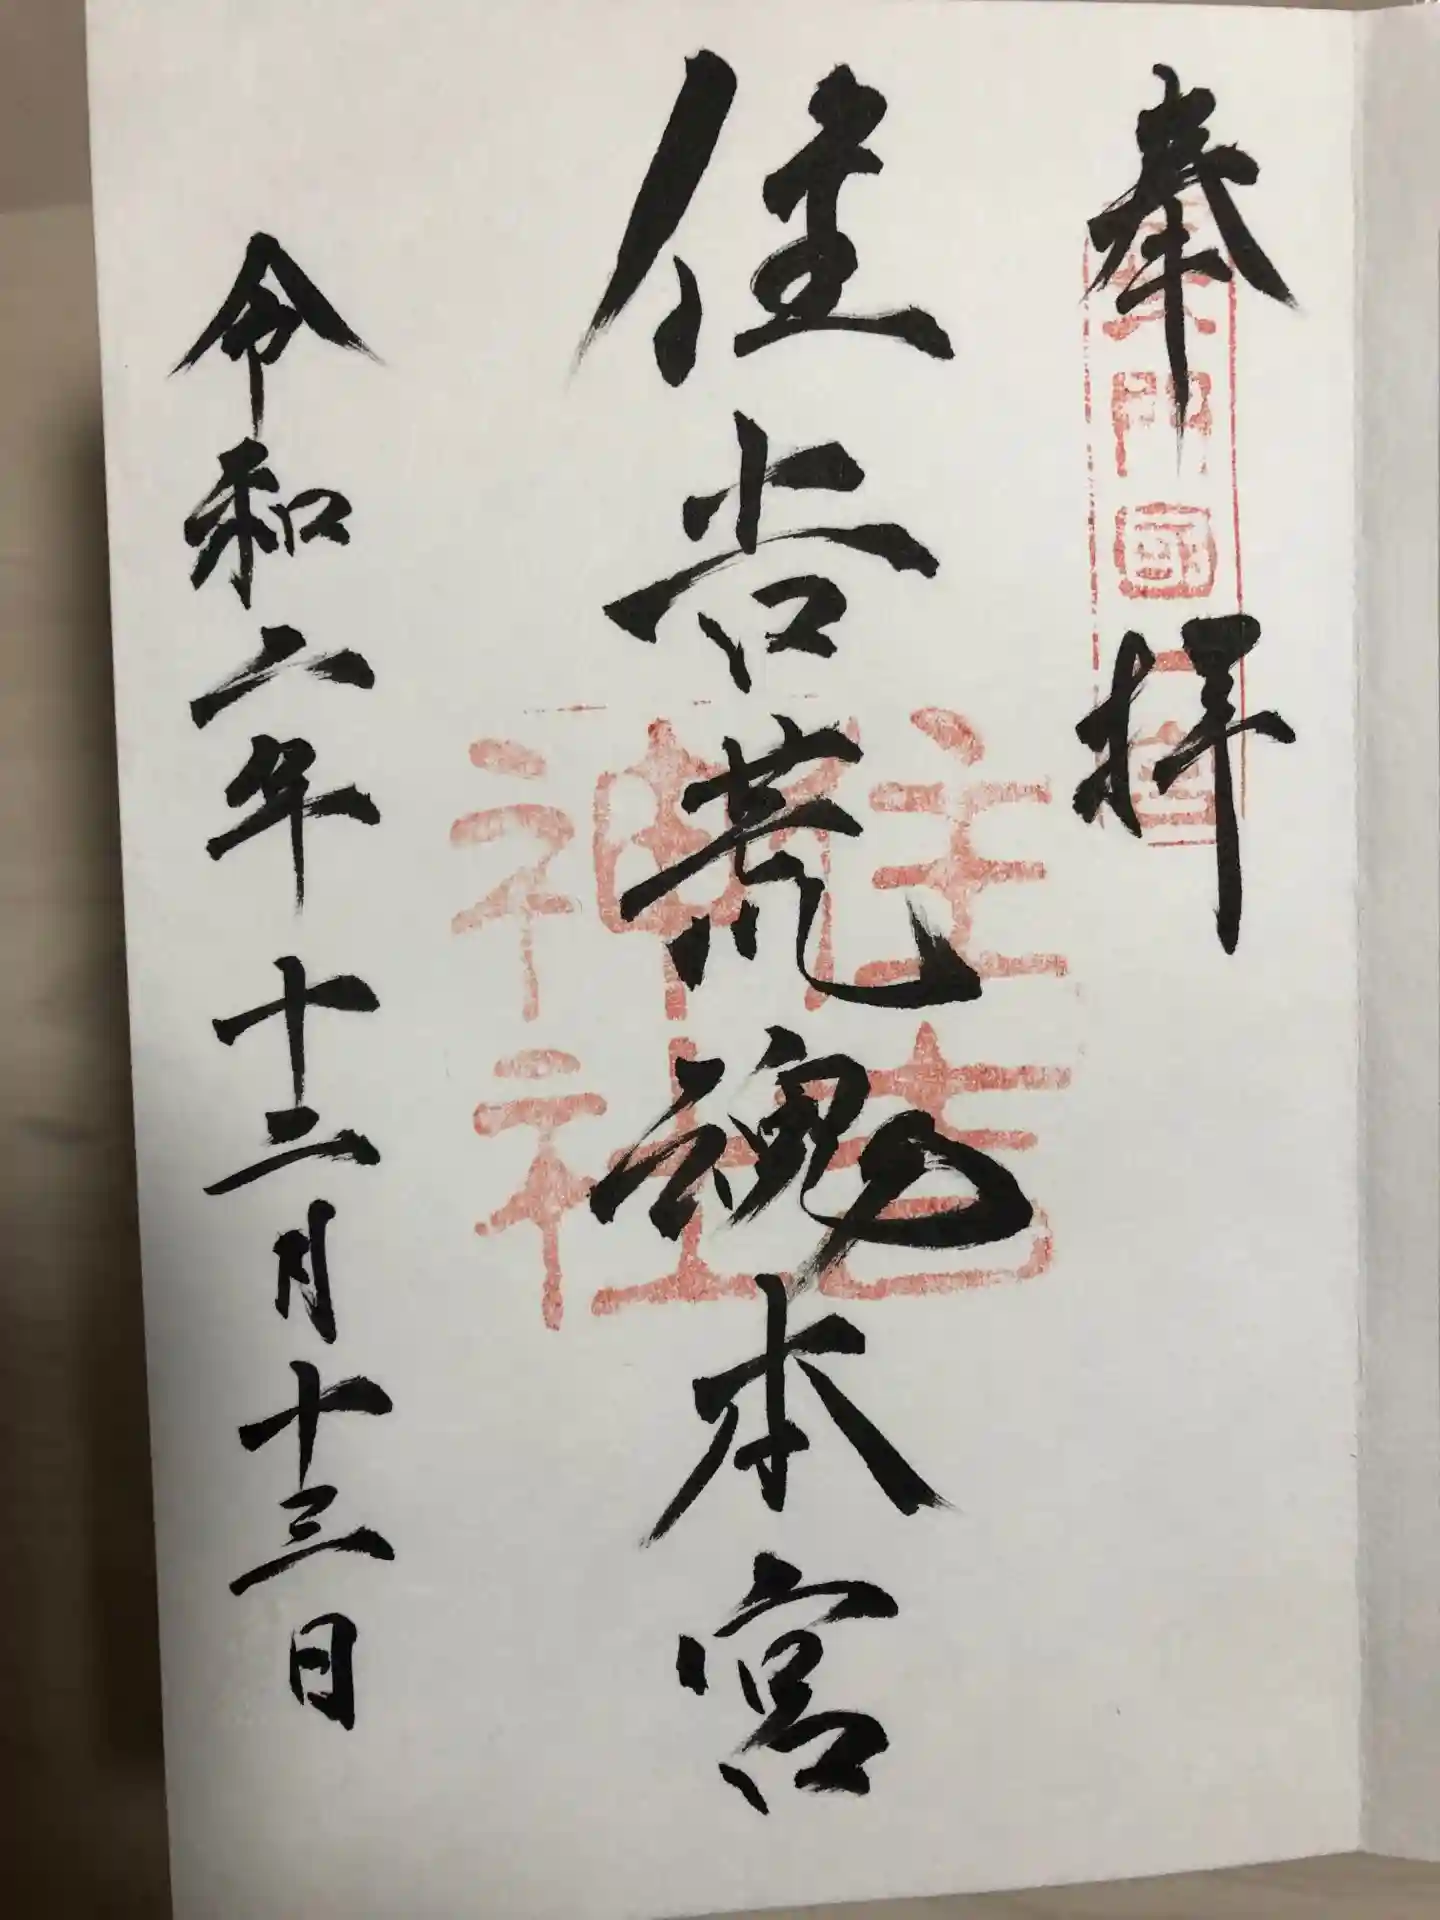 奉拝
長門國一宮
住吉荒魂本宮
住吉神社
令和六年十二月十三日